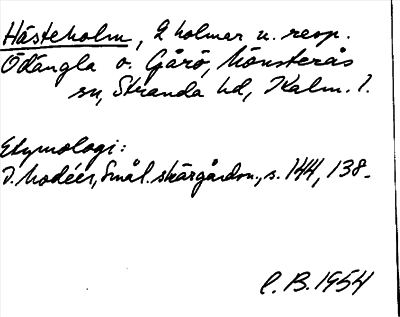 Hästeholm, 2 holmar u. resp.
Ödängla o. Gårö, Mönsterås
sn, Stranda hd, Kalm. l.
Etymologi:
I. Modéer, Smål. skärgårdsn., s. 144, 138.
C. B. 1954